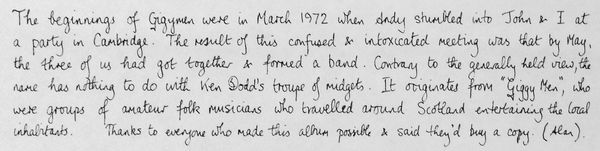 The beginnings of Gigymen were in March 1972 when Andy stumbled into John & I at
a party in Cambridge. The result of this confused & intoxicated meeting was that by May,
the three of us had got together & formed a band. Contrary to the generally held view, the
name has nothing to do with Ken Dodd's troupe of midgets. It originates from "Giggy Men", who
were groups of amateur folk musicians who travelled around Scotland entertaining the local
inhabitants. Thanks to everyone who made this album possible & said they'd buy a copy. (Alan).